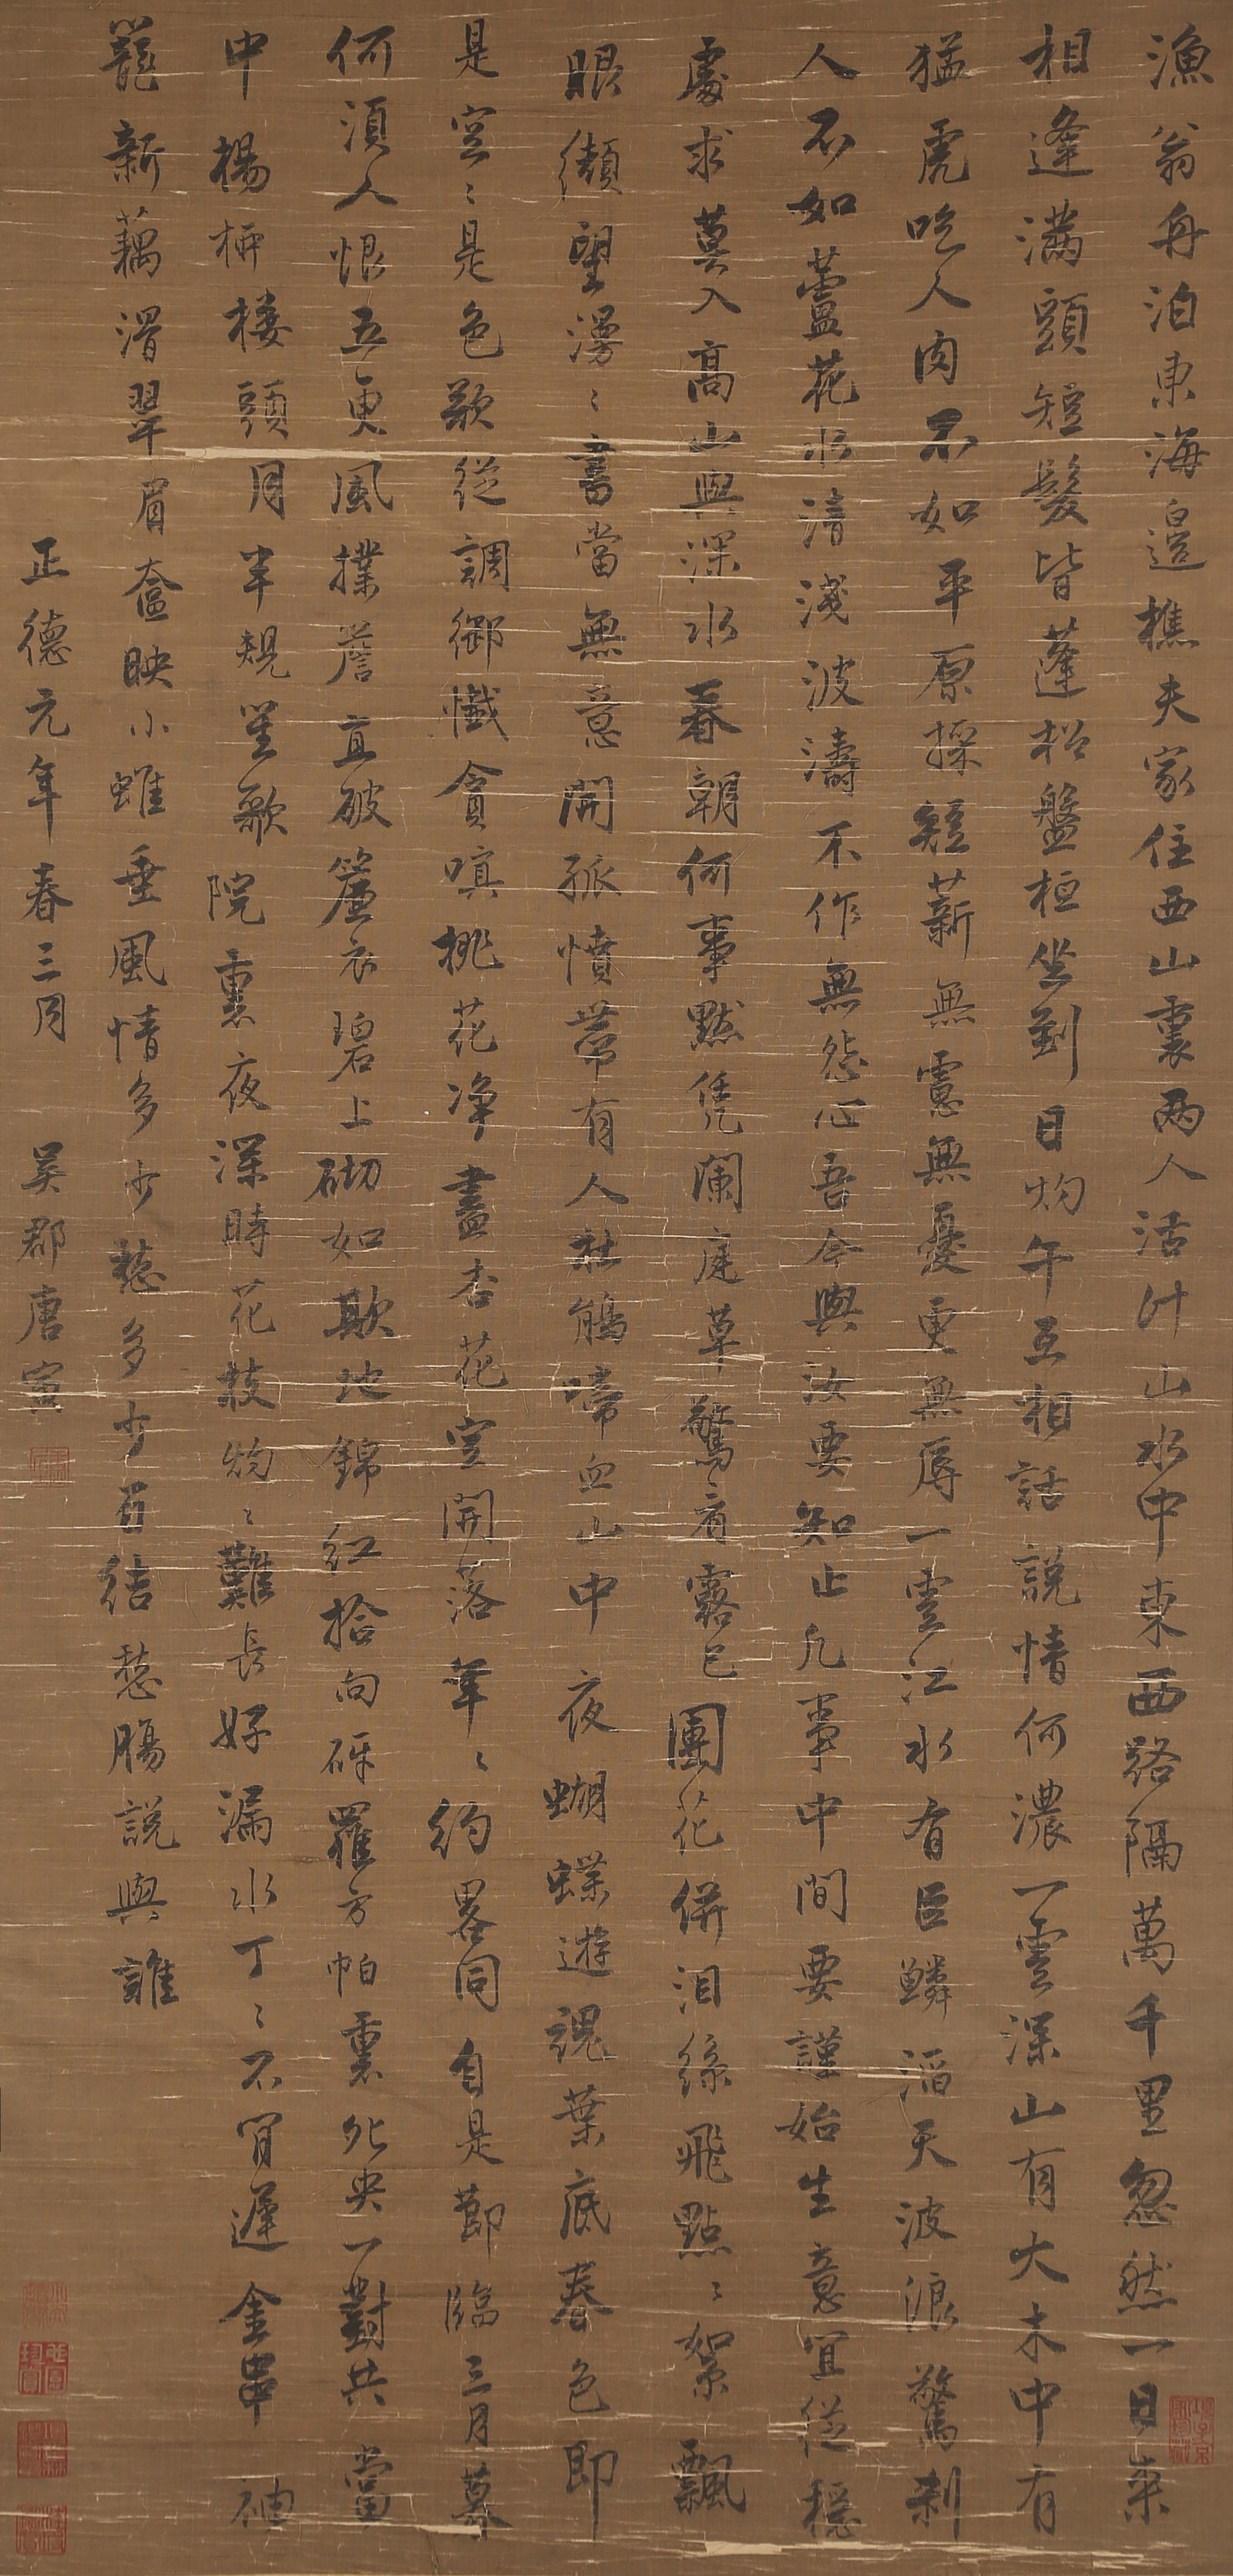 漁翁舟泊東海邊樵夫家住西山裏兩人活計山水中東西路隔萬千里忽然一日來
相逢滿頭短髮皆蓬松盤桓坐到日灼午互相話說情何濃一雲深山有大木中有
猛虎吃人肉不如平原採短薪無慮無憂更無辱一雲江水有巨鱗滔天波浪驚刹
人不如蘆花水清淺波濤不作無怨心吾今與汝要知止凡事中間要謹始生意宜從穩
處求莫入高山與深水春朝何事默凭闌庭草驚看露已團花併泪絲飛點〻絮飄
眼纈望漫〻書當無意開孤憤帶有人社鵑啼血山中夜蝴蝶遊魂葉底春色即
是空〻是色欲從調御懺貪嗔桃花淨盡杏花空開落年〻約畧同自是節臨三月暮
何須人恨五更風撲簷直破簾衣碧上砌如欺地錦紅拾向砑羅方帕裏鴛央一對共當
中楊柳樓頭月半規笙歌院裏夜深時花枝灼〻難長好漏水丁〻不肯遲金串袖
籠新藕滑翠眉奩映小蛾垂風情多少愁多少百結愁腸說與誰
正德元年春三月 吳郡唐寅